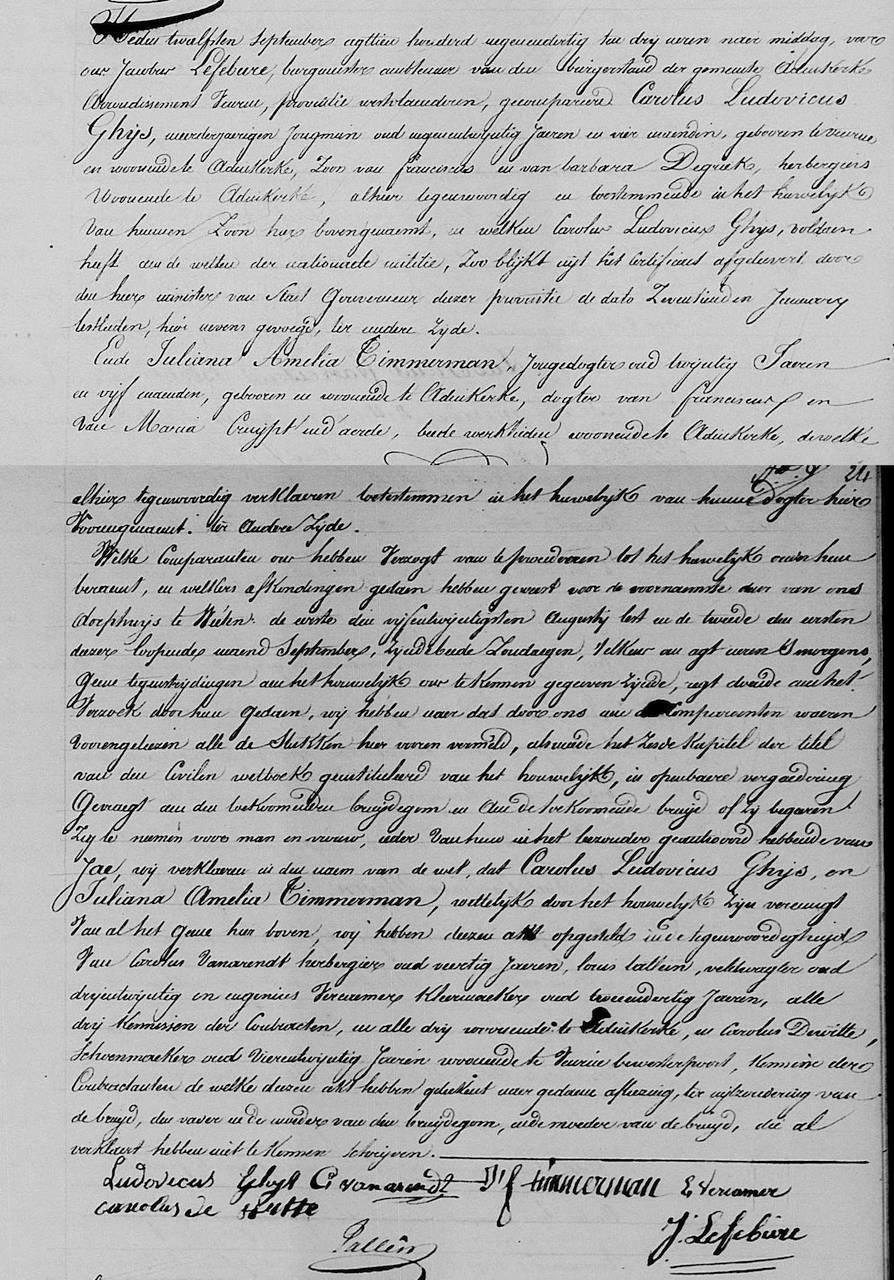 Heden twelfsten September agttien honderd negenendertig ten drij uren naer middag, voor
ons Jacobus Lefebure, burgmeester ambtenaer van den burgerstand der gemeente Adinkerke
Arrondissement Veurne, provintie westvlaenderen, gecompareerd Carolus Ludovicus
Ghijs, meerderjaerigen Jongman oud negenentwijntig Jaeren en vier maenden, gebooren te veurne
en woonende te Adinkerke, Zoon van franciscus en van barbara Degriek, herbergiers
woonende te Adinkerke, alhier tegenwoordig en toestemmende in het huwelijk
van hunnen Zoon hier bovengenaemt, en welken Carolus Ludovicus Ghys, voldaen
heeft aen de wetten der nationaele militie, Zoo blijkt uijt het Certificaet afgelevert door
den heer minister van Staet Gouverneur deezer provintie de dato Zeventienden January
lestleden, hier nevens gevoegt, ter eendere Zyde.
Ende Juliana Amelia Timmerman, Jongedogter oud twijntig Jaeren
en vijf maenden, gebooren en woonende te Adinkerke, dogter van franciscus en
van Maria Cruijpt'ind'aerde, beede werklieden woonende te Adinkerke, dewelke
24
alhier tegenwoordig verklaeren toetestemmen in het huwelijk van hunne dogter hier
voorengenaemt. ter andere Zyde.
Welke Comparanten ons hebben verzogt van te procedeeren tot het huwelijk onder hun
beraemt, en welkers afkondingen gedaen hebben geweest voor de voornaemste deur van ons
dorphuijs te Wéten: de eerste den vijfentwijntigsten Augusty lest en de tweede den eersten
deezer loopende maend September, Zynde beede Zondaegen, telkens en agt uren Smorgens,
Geene tegenstrijdingen aen het houwelijk ons te kennen gegeven Zijnde, regt doende aen het
Verzoek door hun gedaen, wij hebben naer dat door ons aen de Comparenten waeren
voorengeleezen alle de Stukken hier vooren vermeld, alsmede het Zesde Kapitel der titel
van den Civilen wetboek geintituleerd van het houwelijk, in openbaere vergaedering
Gevraegt aen den toekoomenden bruijdegom en aen de toekoomende bruijd of Zij begaeren
Zig te nemen voor man en vrouw, ieder van hun in het bezonder geantwoord hebbende van
Jae, wij verklaeren in den naem van de wet, dat Carolus Ludovicus Ghijs, en
Juliana Amelia Timmerman, wettelijk door het houwelijk Zijn vereenigt
Van al het geene hier boven, wij hebben deezen akt opgesteld in de tegenwoordigheijd
Van Carolus Vanarendt herbergier oud veertig Jaeren, louis tallein, veldwagter oud
drijentwijntig en eugenius Vercamer Kleermaeker oud tweeendertig Jaeren, alle
drij Kennissen der Contracten, en alle drij woonende te Adinkerke, en Carolus Dewitte,
Schoenmaeker oud Vierentwijntig Jaeren woonende te Veurne bewesterpoort, Kennisse der
Contractanten de welke deezen akt hebben geteekent naer gedaene aflezing, ter uijtzondering van
de bruyd, den vader en de moeder van den bruijdegom, en de moeder van de bruijd, die al
verklaert hebben niet te kennen schrijven.
Ludovicus Ghyst C: vanarendt f timmerman E Vercamer
carolus de witte
Tallein J: Lefebure